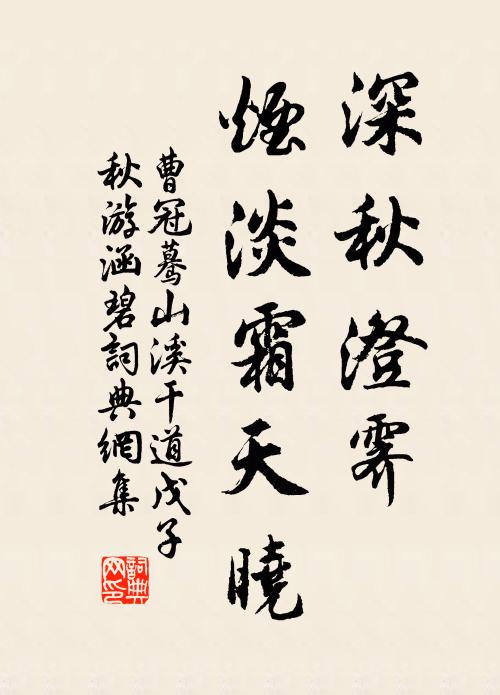 深秋澄霽
煙淡霜天曉
曹冠驀山溪干道戊子
秋游涵碧詞典網集
詞典
网印